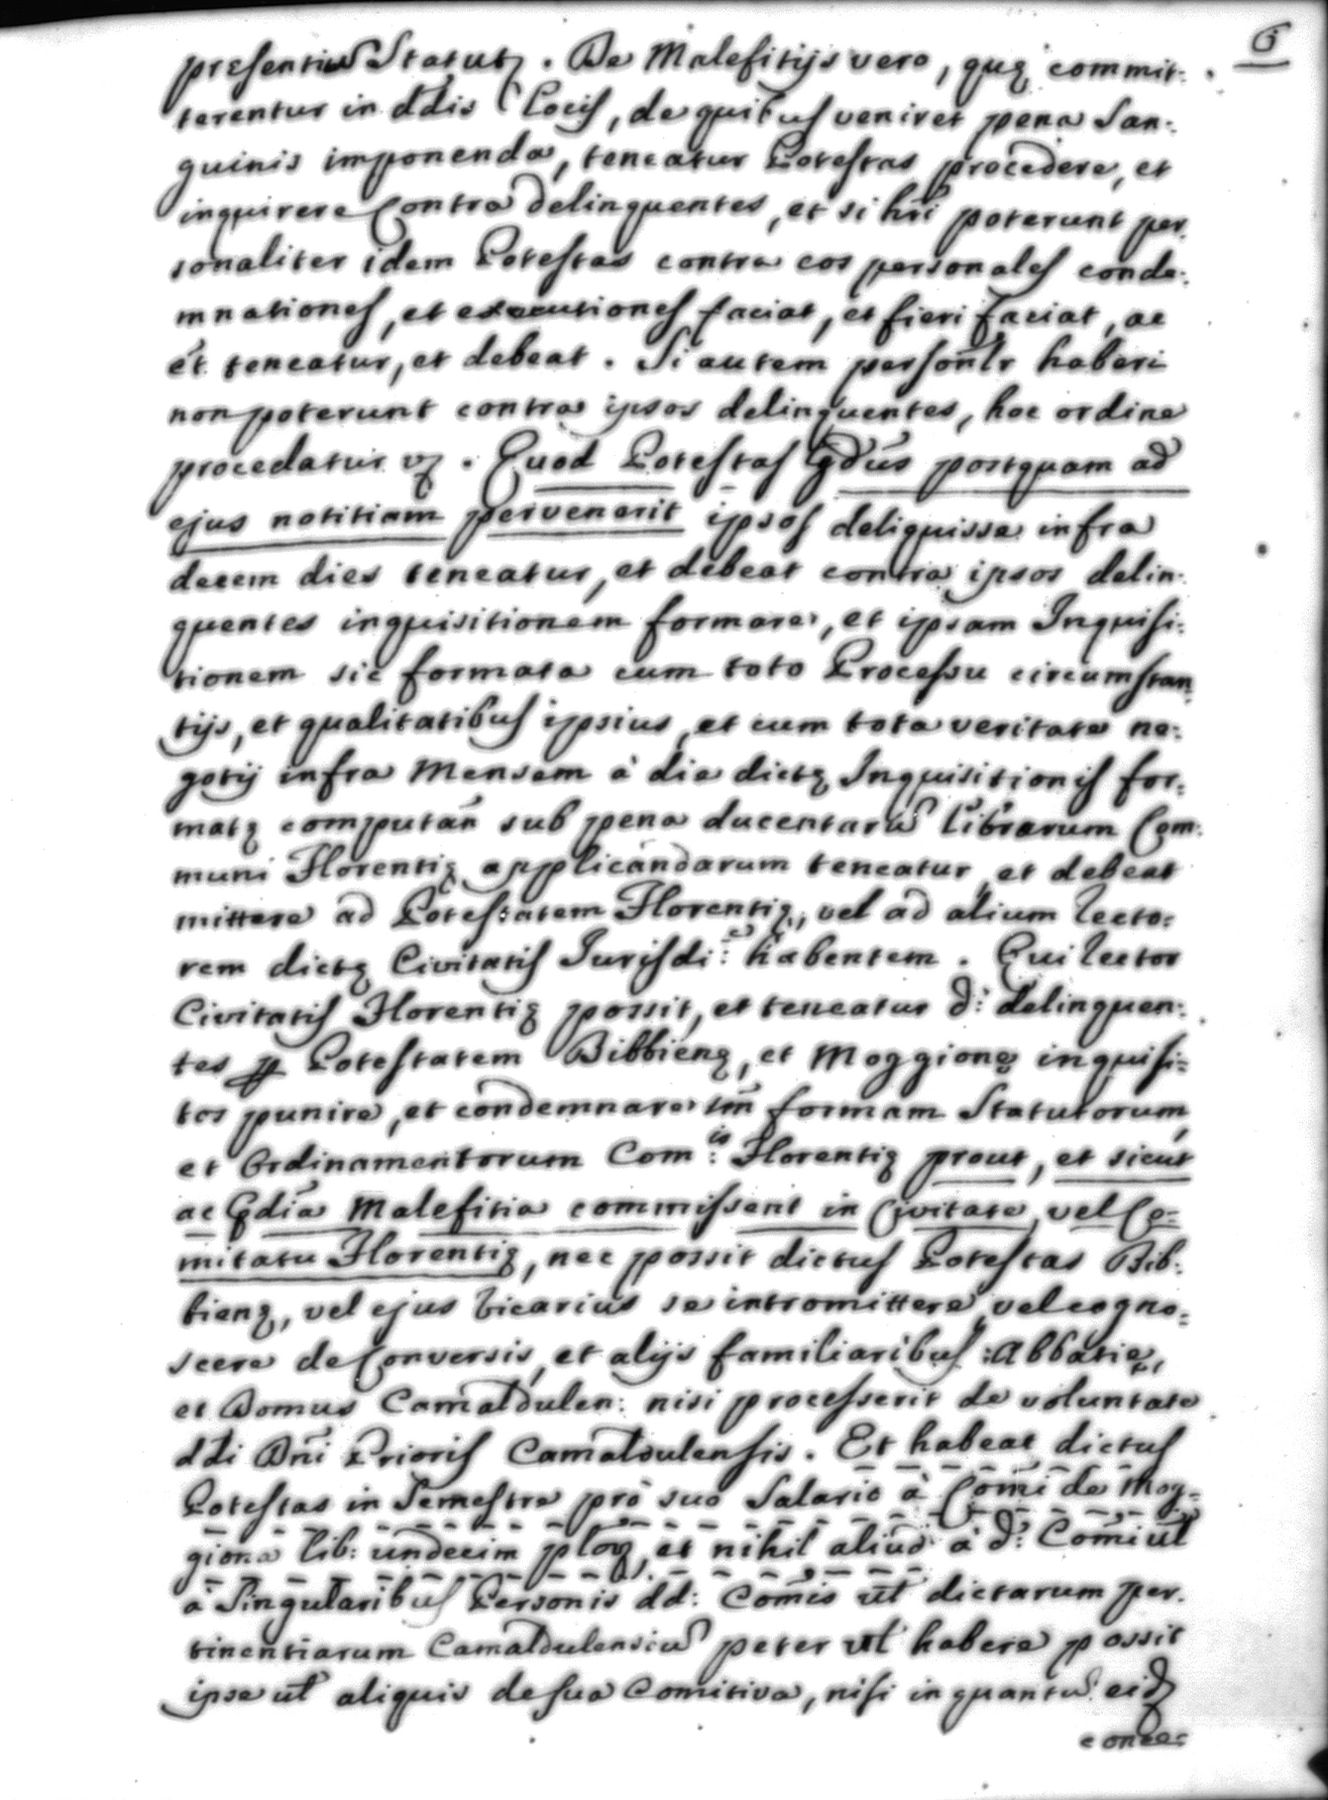 6
presentiu Statutę. De Malefitijs vero, quę commit:
terentur in ddis Locis, de quibus veniret pena San:
guinis imponenda, teneatur Potestas procedere, et
inquirere Contra delinquentes, et si hri poterunt per
sonaliter idem Potestas contra eos personales conde:
mnationes, et executiones faciat, et fieri faciat, ac
et teneatur, et debeat. Si autem personlr haberi
non poterunt contra ipsos delinquentes, hoc ordine
procedatur vz. Quod Potestas pdus postquam ad
ejus notitiam pervenerit ipsos deliquisse infra
decem dies teneatur, et debeat contra ipsos delin:
quentes inquisitionem formare, et ipsam Inquisi:
tionem sic formata cum toto Processu circumstan
tijs, et qualitatibus ipsius, et cum tota veritate ne:
gotij infra Mensem à die dictę Inquisitionis for:
matę computan sub pena ducentaru librarum Com:
muni Florentię applicandarum teneatur, et debeat
mittere ad Potestatem Florentię, vel ad alium Recto:
rem dictę Civitatis Jurisdi:e habentem. Qui Rector
Civitatis Florentię possit, et teneatur d: delinquen:
tes p Potestatem Bibbienę, et Moggionę inquisi:
tos punire, et condemnare sm formam Statutorum,
et Ordinamentorum Com:is Florentię prout, et sicut
ac pdia Malefitia commissent in Civitate, vel Co:
mitatu Florentię, nec possit dictus Potestas Bib:
bienę, vel ejus Vicarius se intromittere, vel cogno:
scere de Conversis, et alijs familiaribus Abbatię,
et Domus Camaldulen: nisi processerit de voluntate
ddi Dni Prioris Camaldulensis. Et habeat dictus
Potestas in Semestre pro suo Salario à Comi de Mog:
giona lib: undecim et nihil aliud à d: Comi ul
à Singularibus Personis dd: Comis ul dictarum per:
tinentiarum Camaldulensiu peter ul habere possit
ipse ul aliquis de sua Comitiva, nisi in quantu eidę
conce: